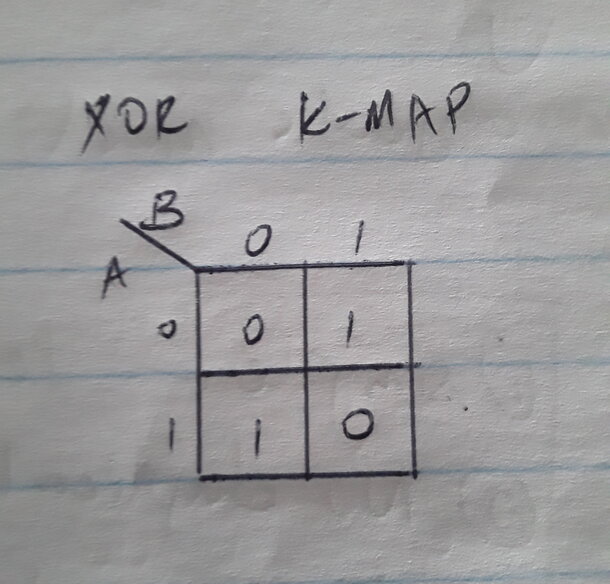 XOR K-MAP
B
0 1
A
0 0 1
1 1 0